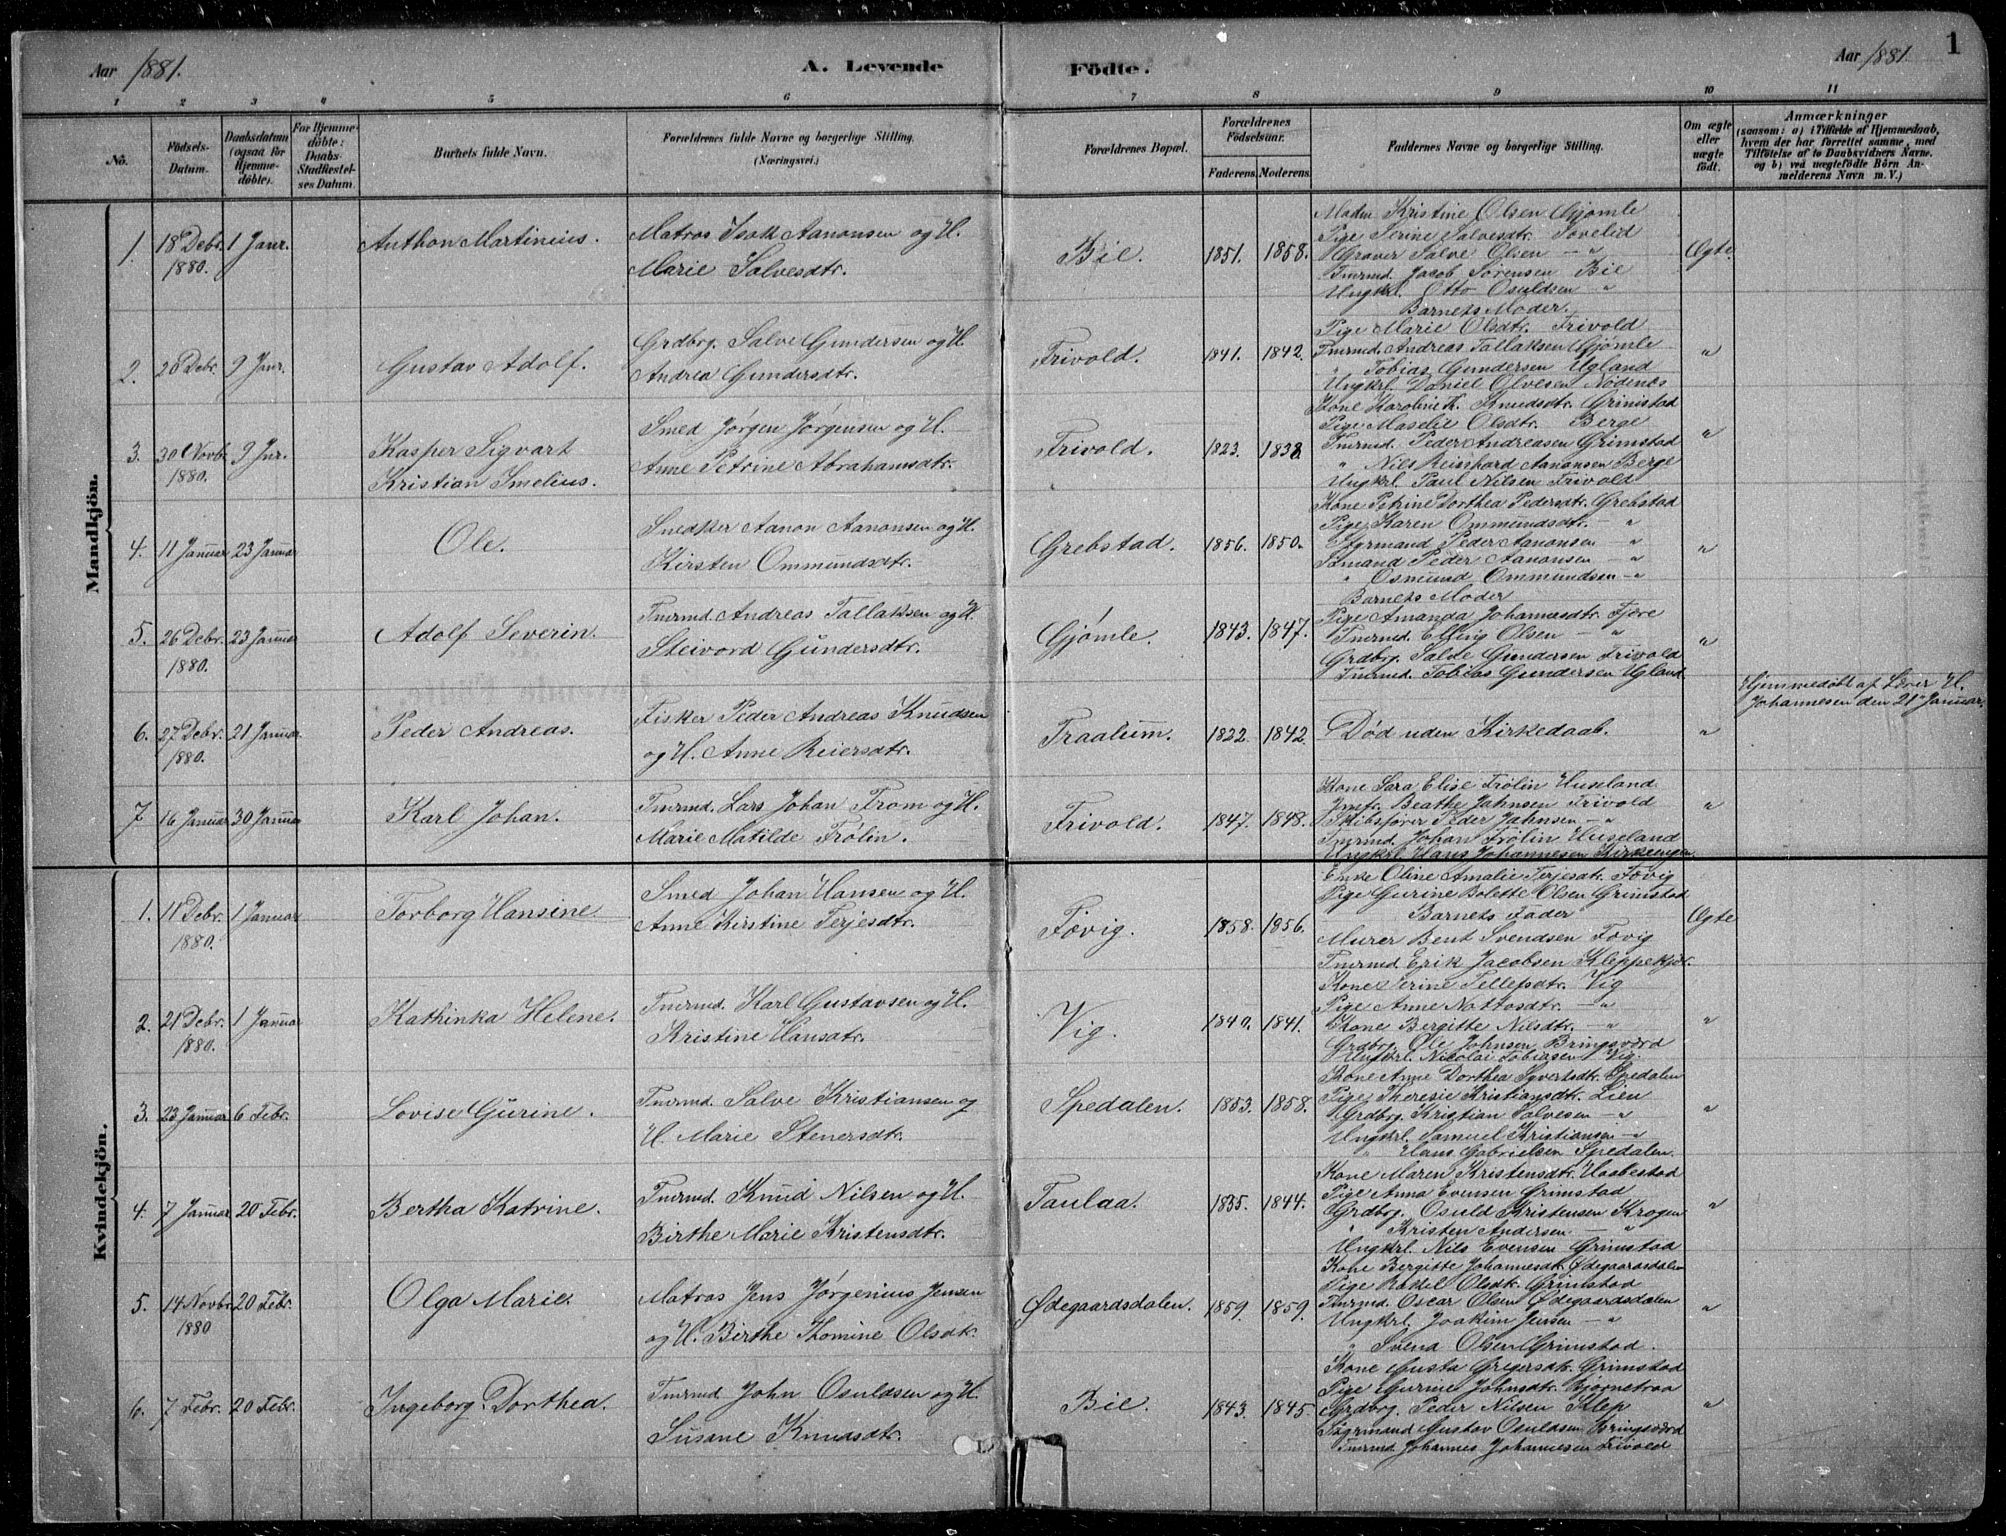 Aar 1881. A. Levende Födte. Aar 1881. 1
1 2 3 4 5 6 7 8 9 10 11
No. Födsels-Datum. Daabsdatum (ogsaa for Hjemme-döbte). For Hjemme-döbte: Daabs-Stadfæstel-ses Datum. Barnets fulde Navn. Forældrenes fulde Navne og borgerlige Stilling. (Næringsvei.) Forældrenes Bopæl. Forældrenes Födselsaar. Faderens. Moderens. Faddernes Navne og borgerlige Stilling. Om ægte eller uægte födt. Anmærkninger (saasom: a) i Tilfælde af Hjemmedaab, hvem der har forrettet samme, med Tilföielse af to Daabsvidners Navne. og b) ved uægtefödte Börn An-melderens Navn m. V.)
Mandkjön.
1. 18 Debr. 1880. 1 Janr. Anthon Martinius. Matros Isak Aanonsen og H. Marie Salvesdtr. Bie. 1851. 1858. Ægte.
Moder Kristine Olsen Gjømle
Pige Serine Salvesdtr. Tovelid
Graver Salve Olsen — "
Tmrmd. Jacob Sørensen Bie
Ungkrl. Otto Osuldsen "
Barnets Moder.
2. 28 Debr. 9 Janr. Gustav Adolf. Grdbrg. Salve Gundersen og H. Andrea Gundersdtr. Frivold. 1841. 1842. "
Pige Marie Olsdtr. Frivold
Tmrmd. Andreas Tallaksen Gjømle
" Tobias Gundersen Ugland
Ungkrl. Daniel Olvesen Nødenæs
3. 30 Novbr. 1880. 9 Jnr. Kasper Sigvart Kristian Imelius. Smed Jørgen Jørgensen og H. Anne Petrine Abrahamsdtr. Frivold. 1823. 1838. "
Kone Karoline K. Knudsdtr. Grimstad
Pige Maselie Olsdtr. Berge
Tmrmd. Peder Andreasen Grimstad
" Nils Reinhard Aanonsen Berge
Ungkrl Paul Nilsen Frivold
4. 11 Januar 23 Januar Ole. Snedker Aanon Aanonsen og H. Kirsten Ommundsdtr. Grebstad. 1856. 1850. "
Kone Petrine Dorthea Pedersdtr. Grebstad
Pige Karen Ommundsdtr. — "
Styrmand Peder Aanonsen — "
Sømand Peder Aanonsen — "
" Osmund Ommundsen — "
Barnets Moder
5. 26 Debr. 1880. 23 Januar Adolf Severin. Tmrmd. Andreas Tallaksen og H. Steivord Gundersdtr. Gjømle. 1843. 1847. "
Pige Amanda Johannesdtr. Fjære
Tmrmd. Elling Olsen — "
Grdbrg. Salve Gundersen Frivold
Tmrmd. Tobias Gundersen Ugland
6. 27 Debr. 1880. 21 Januar Peder Andreas. Fisker Peder Andreas Knudsen og H. Anne Reiersdtr. Traalum. 1822. 1842. Død uden Kirkedaab. "
Hjemmedøbt af Lærer H. Johannesen den 21 Januar.
7 16 Januar 30 Januar Karl Johan. Tmrmd. Lars Johan From og H. Marie Matilde Frölin. Frivold. 1847. 1848. "
Kone Sara Elise Frölin Huseland
Jmfr. Beathe Jahnsen Frivold
Skibsfører Peder Jahnsen — "
Tmrmd. Johan Frölin Huseland
Ungkrl Hans Johannesen Kirkeengen
Kvindekjön.
1. 11 Debr. 1880. 1 Januar Torborg Hansine Smed Johan Hansen og H. Anne Kirstine Terjesdtr. Fovig. 1858. 1856. Ægte
Enke Oline Amalie Terjesdtr. Fovig
Pige Gurine Bolette Olsen Grimstad
Barnets Fader
Murer Bent Svendsen Fovig
Tmrmd. Erik Jacobsen Kleppekjær.
2. 21 Debr. 1880. 1 Januar Kathinka Helene. Tmrmd. Karl Gustavsen og H. Kristine Hansdtr. Vig. 1840. 1841. "
Kone Serine Tellefsdtr. Vig
Pige Anne Nottosdtr. — "
Kone Bergitte Nilsdtr. — "
Grdbrg. Ole Johnsen Bringsværd
Ungkrl. Nicolai Tobiasen Vig.
3. 23 Januar 6 Febr. Lovise Gurine. Tmrmd. Salve Kristiansen og H. Marie Stenersdtr. Spedalen. 1853. 1858. "
Kone Anne Dorthea Syvertsdtr. Spedalen
Pige Theresie Kristiansdtr. Lien
Grdbrg. Kristian Salvesen — "
Ungkrl. Samuel Kristiansen — "
" Hans Gabrielsen Spedalen.
4. 7 Januar 20 Febr. Bertha Katrine. Tmrmd. Knud Nilsen og H. Birthe Marie Kristensdtr. Taulaa. 1835. 1844. "
Kone Maren Kristensdtr. Haabestad
Pige Anna Evensen Grimstad
Grdbrg. Osuld Kristensen Krogen
" Kristen Andersen — "
Ungkrl. Nils Evensen Grimstad
5. 14 Novbr. 1880 20 Febr. Olga Marie. Matros Jens Jørgenius Jensen og H. Birthe Thomine Olsdtr. Ødegaardsdalen. 1859. 1859. "
Kone Bergitte Johannesdtr. Ødegaardsdalen
Pige Rakel Olsdtr. Grimstad
Tmrmd. Oscar Olsen Ødegaardsdalen
Ungkrl. Joakim Jensen — "
" Svend Olsen Grimstad.
6. 7 Febr. 20 Febr. Ingeborg Dorthea. Tmrmd. John Osuldsen og H. Susane Knudsdtr. Bie. 1843. 1845. "
Kone Gusta Gregersdtr. Grimstad
Pige Gurine Johnsdtr. Bjornetraa
Grdbrg. Peder Nilsen Klep
Styrmand Gustav Osuldsen Bringsværd
Tmrmd Johannes Johannesen Frivold